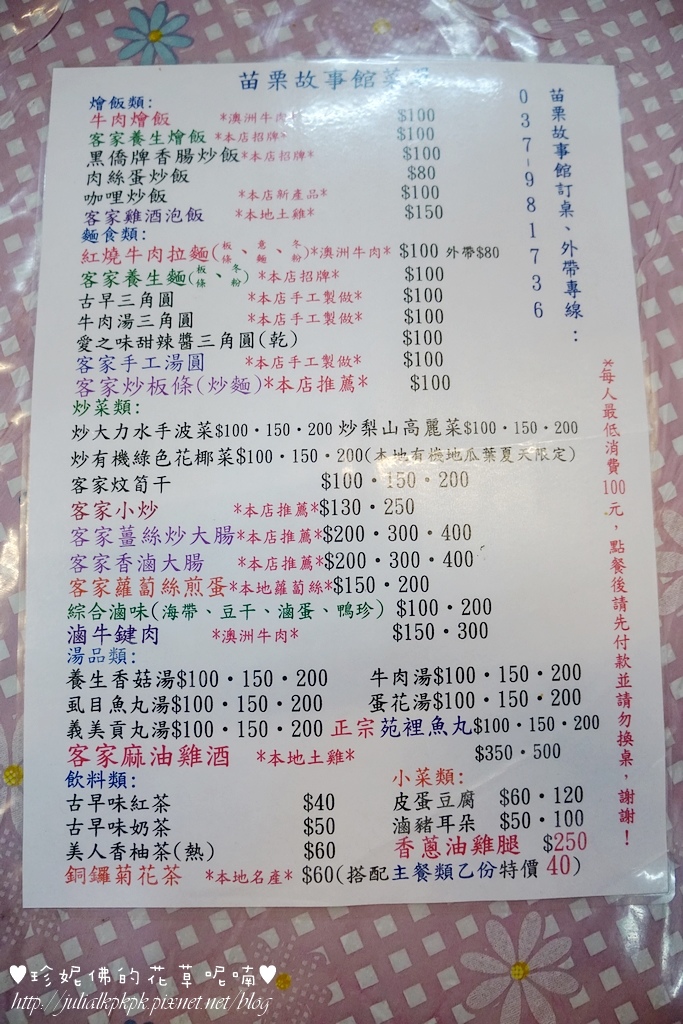 苗栗故事館菜
燴飯類:
牛肉燴飯 *澳洲牛肉 $100
客家養生燴飯 *本店招牌* $100
黑僑牌香腸炒飯*本店招牌* $100
肉絲蛋炒飯 $80
咖哩炒飯 *本店新產品* $100
客家雞酒泡飯 *本地土雞* $150
麵食類:
紅燒牛肉拉麵(板條、意麵、冬粉)*澳洲牛肉* $100 外帶$80
客家養生麵(板條、冬粉) *本店招牌* $100
古早三角圓 *本店手工製做* $100
牛肉湯三角圓 *本店手工製做* $100
愛之味甜辣醬三角圓(乾) $100
客家手工湯圓 *本店手工製做* $100
客家炒板條(炒麵)*本店推薦* $100
炒菜類:
炒大力水手波菜$100・150・200 炒梨山高麗菜$100・150・200
炒有機綠色花椰菜$100・150・200(本地有機地瓜葉夏天限定)
客家炆筍干 $100・150・200
客家小炒 *本店推薦*$130・250
客家薑絲炒大腸*本店推薦*$200・300・400
客家香滷大腸 *本店推薦*$200・300・400
客家蘿蔔絲煎蛋*本地蘿蔔絲*$150・200
綜合滷味(海帶、豆干、滷蛋、鴨珍) $100・200
滷牛鍵肉 *澳洲牛肉* $150・300
湯品類:
養生香菇湯$100・150・200 牛肉湯$100・150・200
虱目魚丸湯$100・150・200 蛋花湯$100・150・200
義美貢丸湯$100・150・200 正宗苑裡魚丸$100・150・200
客家麻油雞酒 *本地土雞* $350・500
飲料類:
古早味紅茶 $40
古早味奶茶 $50
美人香柚茶(熱) $60
銅鑼菊花茶 *本地名產* $60(搭配主餐類乙份特價 40)
小菜類:
皮蛋豆腐 $60・120
滷豬耳朵 $50・100
香蔥油雞腿 $250
苗栗故事館訂桌、外帶專線:
037-981736
*每人最低消費100元,點餐後請先付款並請勿換桌,謝謝!
♥珍妮佛的花草呢喃♥
http://julialkpkpk.pixnet.net/blog